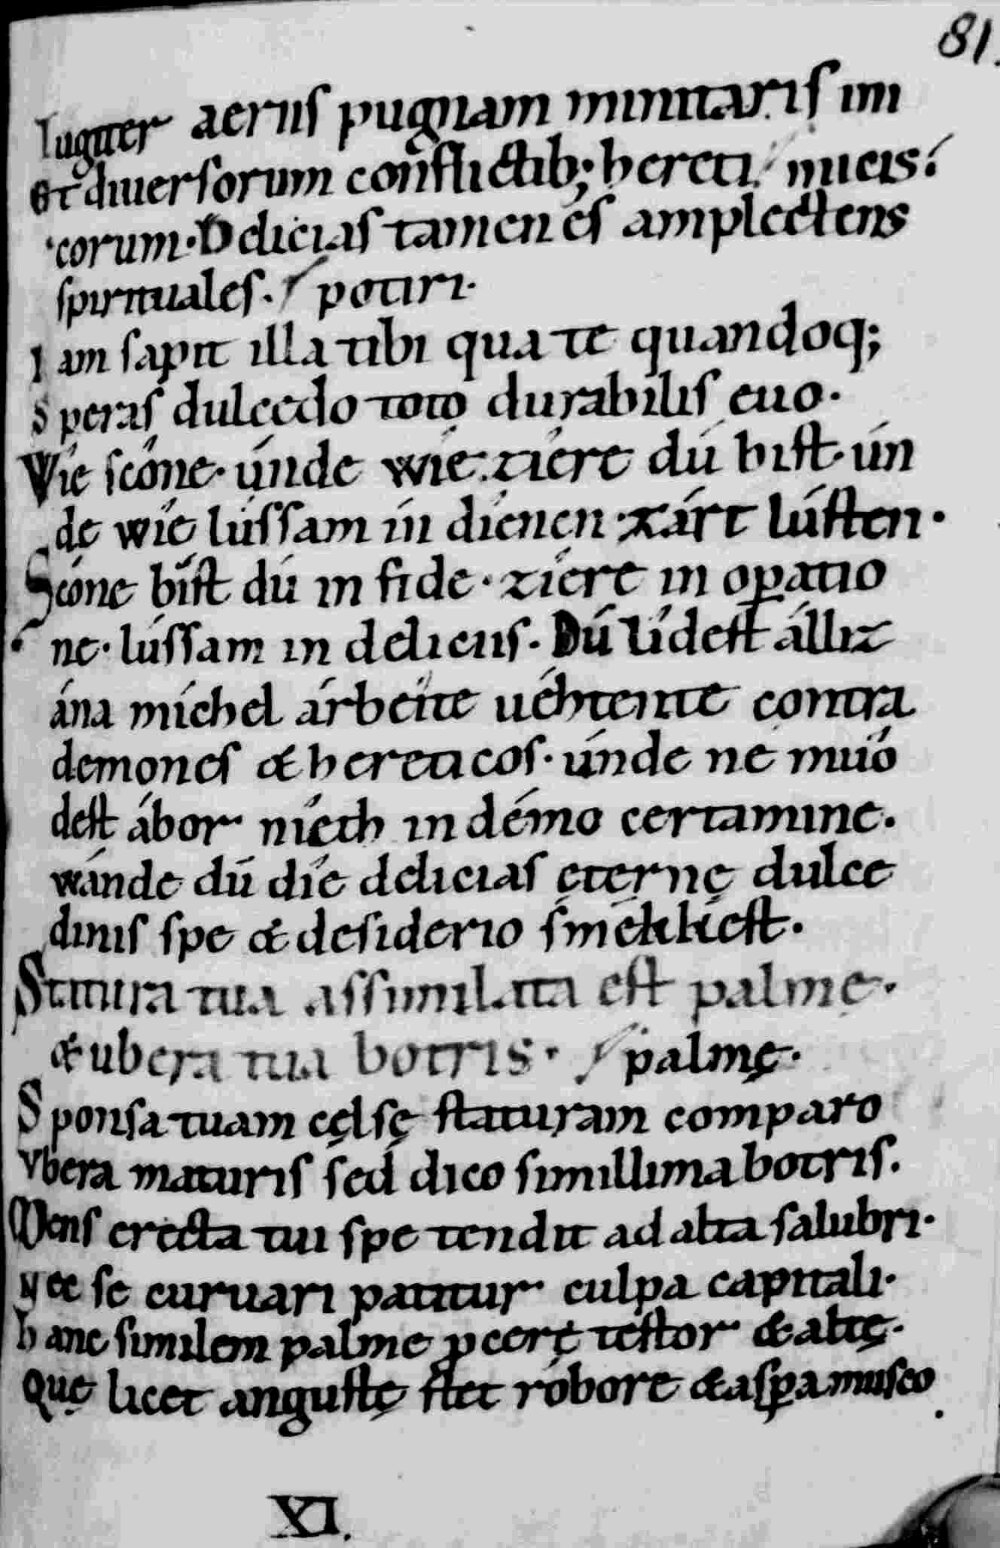 81.
Iugiter aeriis pugnam minitaris ini
Et diuersorum conflictib; hereti / micis.
corum. Delicias tamen es amplectens
spirituales. / potiri.
Iam sapit illa tibi qua te quandoq;
Speras dulcedo toto durabilis ęuo.
Wîe scône. únde wîe. zîere dû bist. ún
de wîe lússam in dîenen zárt lústen.
Scône bíst dû in fide. zîere in oꝑatio
ne. lússam in deliciis. Dû lîdest álliz
ána míchel árbeite uéhtente contra
demones & hereticos. únde ne mûo
dest ábor nîeth in démo certamine.
wánde dû dîe delicias ęternę dulce
dinis spe & desiderio smékkest.
Statura tua assimilata est palmę.
& ubera tua botris. / palmę.
Sponsa tuam cęlsę staturam comparo
Vbera maturis sed dico simillima botris.
Mens erecta tui spe tendit ad alta salubri.
Nec se curuari patitur culpa capitali.
Hanc similem palme ꝓcerę testor & altę.
Quę licet angustę stet róbore & asꝑa musco
XI.